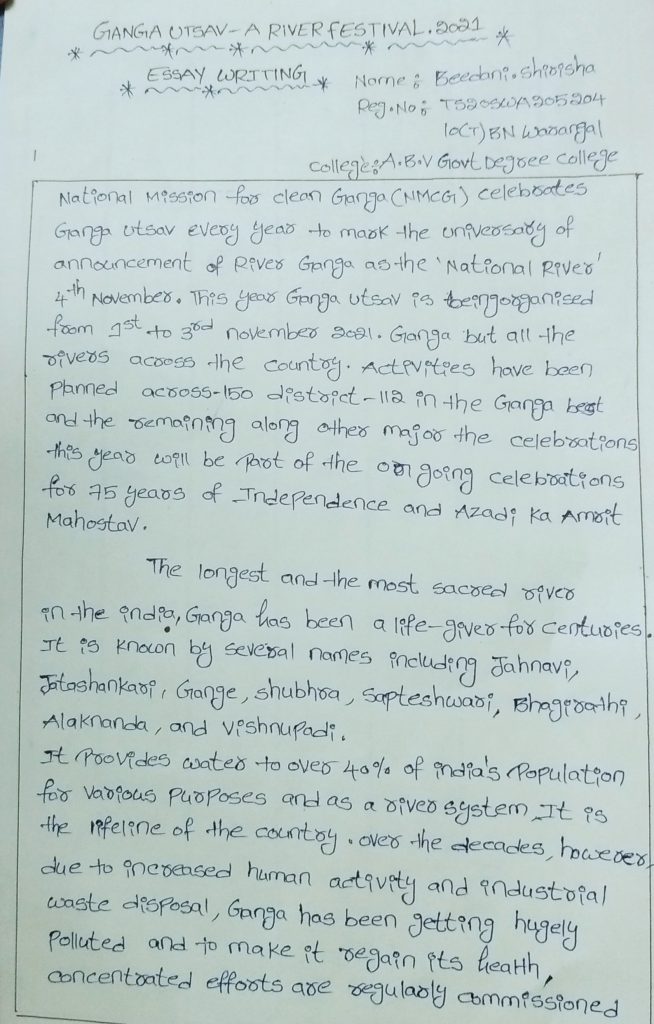 GANGA UTSAV - A RIVER FESTIVAL. 2021
ESSAY WRITING
Name : Beedani. shirisha
Reg. No : TS20SWA205204
10(T) BN Warangal
college : A.B.V Govt Degree college
National Mission for clean Ganga (NMCG) celebrates
Ganga utsav every year to mark the universary of
announcement of River Ganga as the 'National River'
4th November. This year Ganga utsav is beingorganised
from 1st to 3rd november 2021. Ganga but all the
rivers across the country. Activities have been
planned across-150 district-112 in the Ganga best
and the remaining along other major the celebrations
this year will be part of the on going celebrations
for 75 years of Independence and Azadi Ka Amrit
Mahostav.
The longest and the most sacred river
in the india, Ganga has been a life-giver for centuries.
It is known by several names including Jahnavi,
Jatashankari, Gange, shubhra, sapteshwari, Bhagirathi,
Alaknanda, and Vishnupadi.
It Provides water to over 40% of india's Population
for various purposes and as a river system It is
the lifeline of the country. over the decades, however,
due to increased human activity and industrial
waste disposal, Ganga has been getting hugely
Polluted and to make it regain its health,
concentrated efforts are regularly commissioned